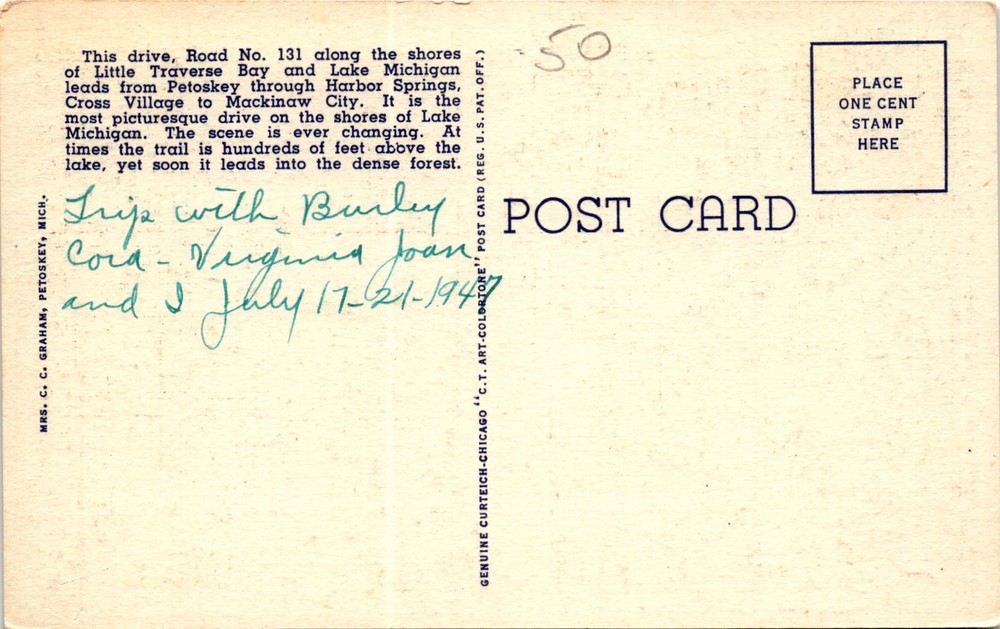 This drive, Road No. 131 along the shores
of Little Traverse Bay and Lake Michigan
leads from Petoskey through Harbor Springs,
Cross Village to Mackinaw City. It is the
most picturesque drive on the shores of Lake
Michigan. The scene is ever changing. At
times the trail is hundreds of feet above the
lake, yet soon it leads into the dense forest.
Trip with Burley
Cora - Virginia Joan
and I July 17-21-1947
MRS. C. C. GRAHAM, PETOSKEY, MICH.
GENUINE CURTEICH-CHICAGO "C.T. ART-COLORTONE" POST CARD (REG. U.S. PAT. OFF.)
50
POST CARD
PLACE
ONE CENT
STAMP
HERE